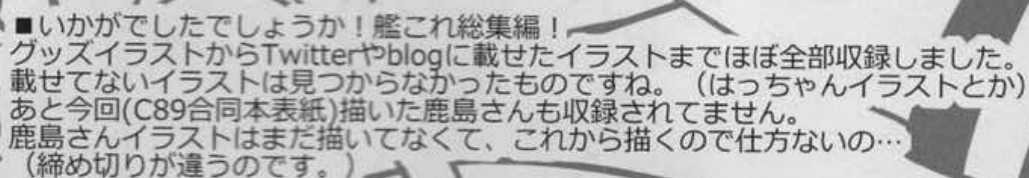 ■いかがでしたでしょうか！艦これ総集編！
グッズイラストからTwitterやblogに載せたイラストまでほぼ全部収録しました。
載せてないイラストは見つからなかったものですね。（はっちゃんイラストとか）
あと今回(C89合同本表紙)描いた鹿島さんも収録されてません。
鹿島さんイラストはまだ描いてなくて、これから描くので仕方ないの…
（締め切りが違うのです。）